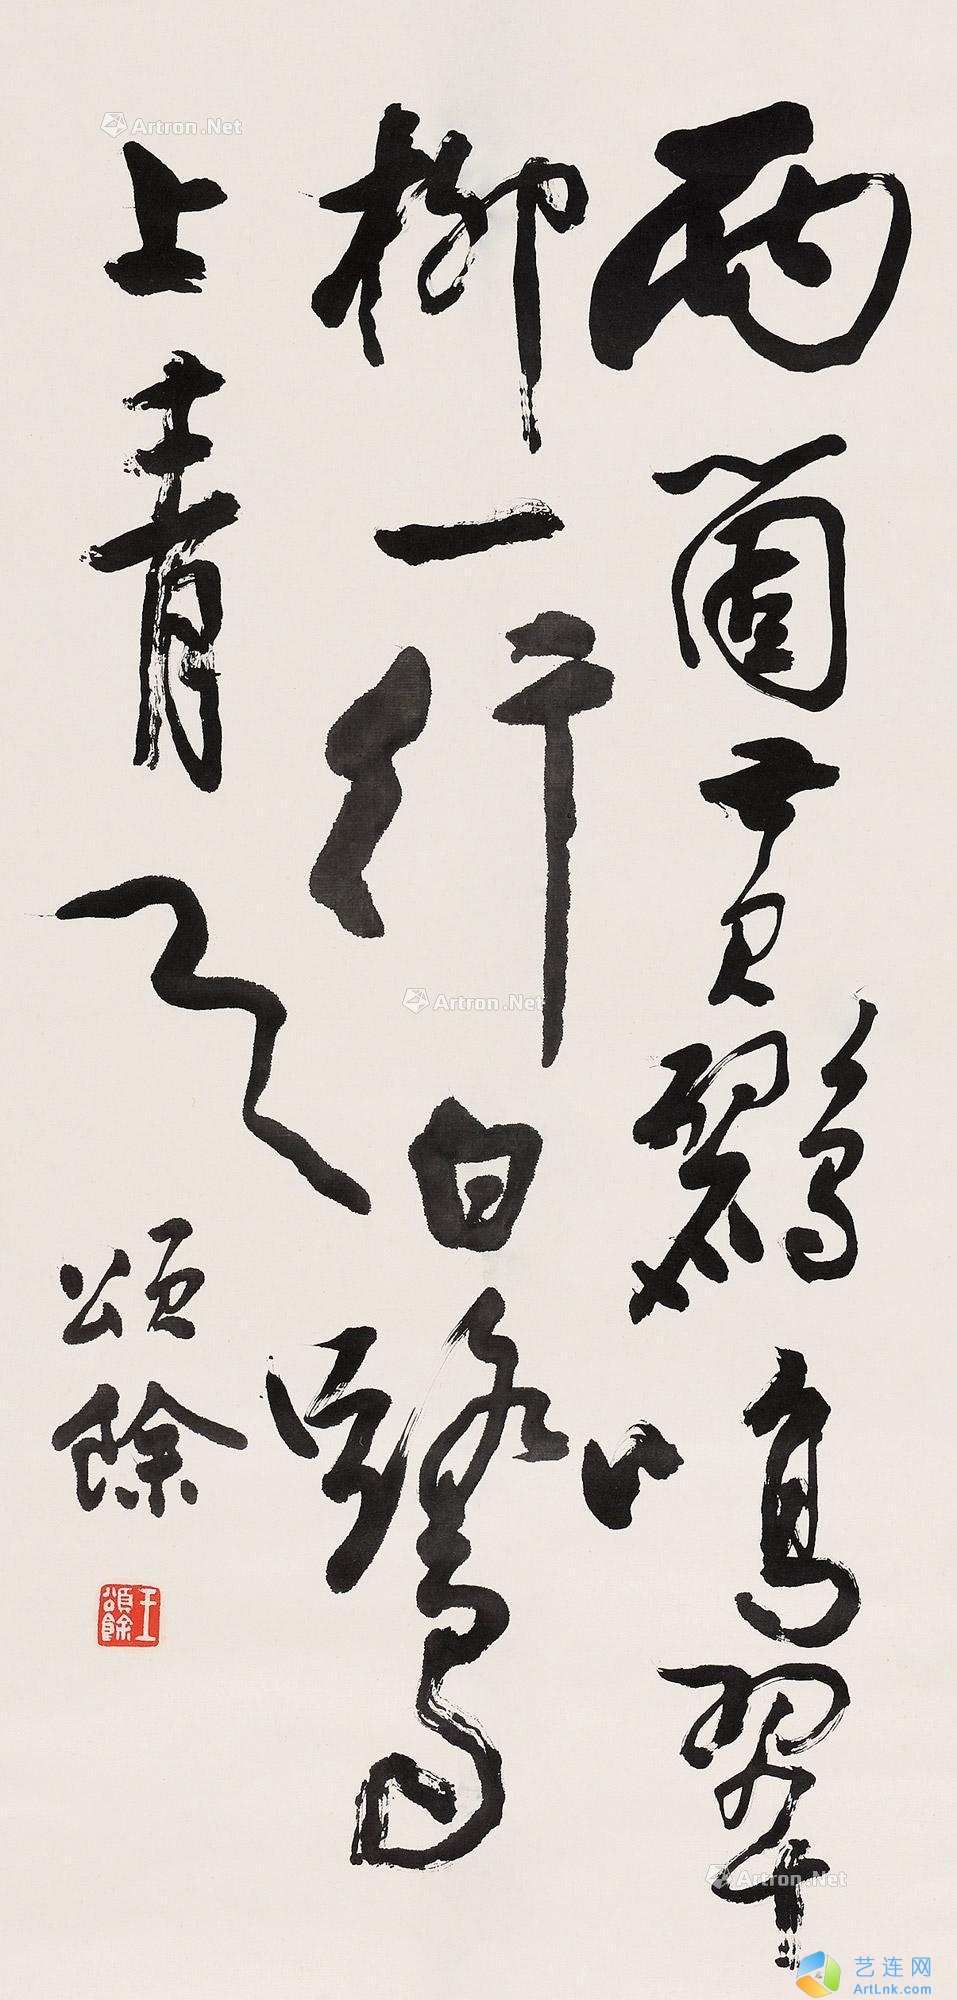 两箇黄鸝鳴翠
柳一行白鷺
上青天
頌餘
王頌餘
Artron.Net
Artron.Net
Artron.Net
艺连网
ArtLnk.com